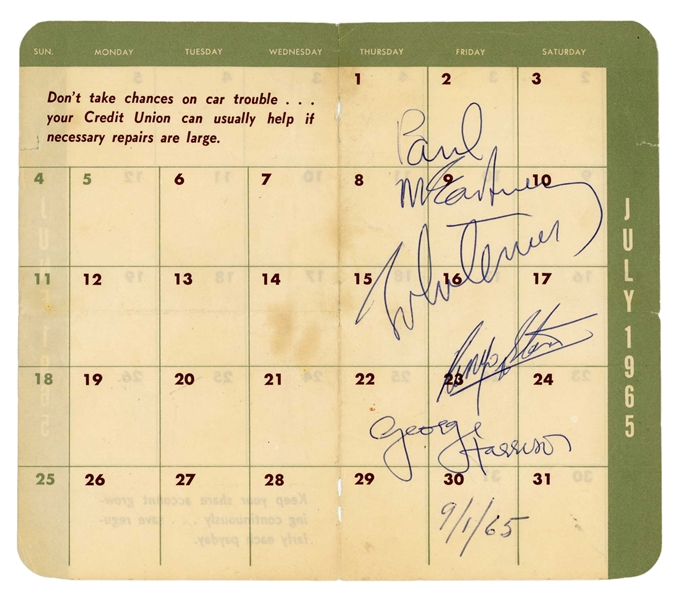 SUN. MONDAY TUESDAY WEDNESDAY THURSDAY FRIDAY SATURDAY
1 2 3
Don't take chances on car trouble . . .
your Credit Union can usually help if
necessary repairs are large.
Paul
McCartney
4 5 6 7 8 9 10
John Lennon
11 12 13 14 15 16 17
Ringo Starr
18 19 20 21 22 23 24
George
Harrison
25 26 27 28 29 30 31
9/1/65
JULY 1965
Keep your share account grow-
ing continuously . . . save regu-
larly each payday.